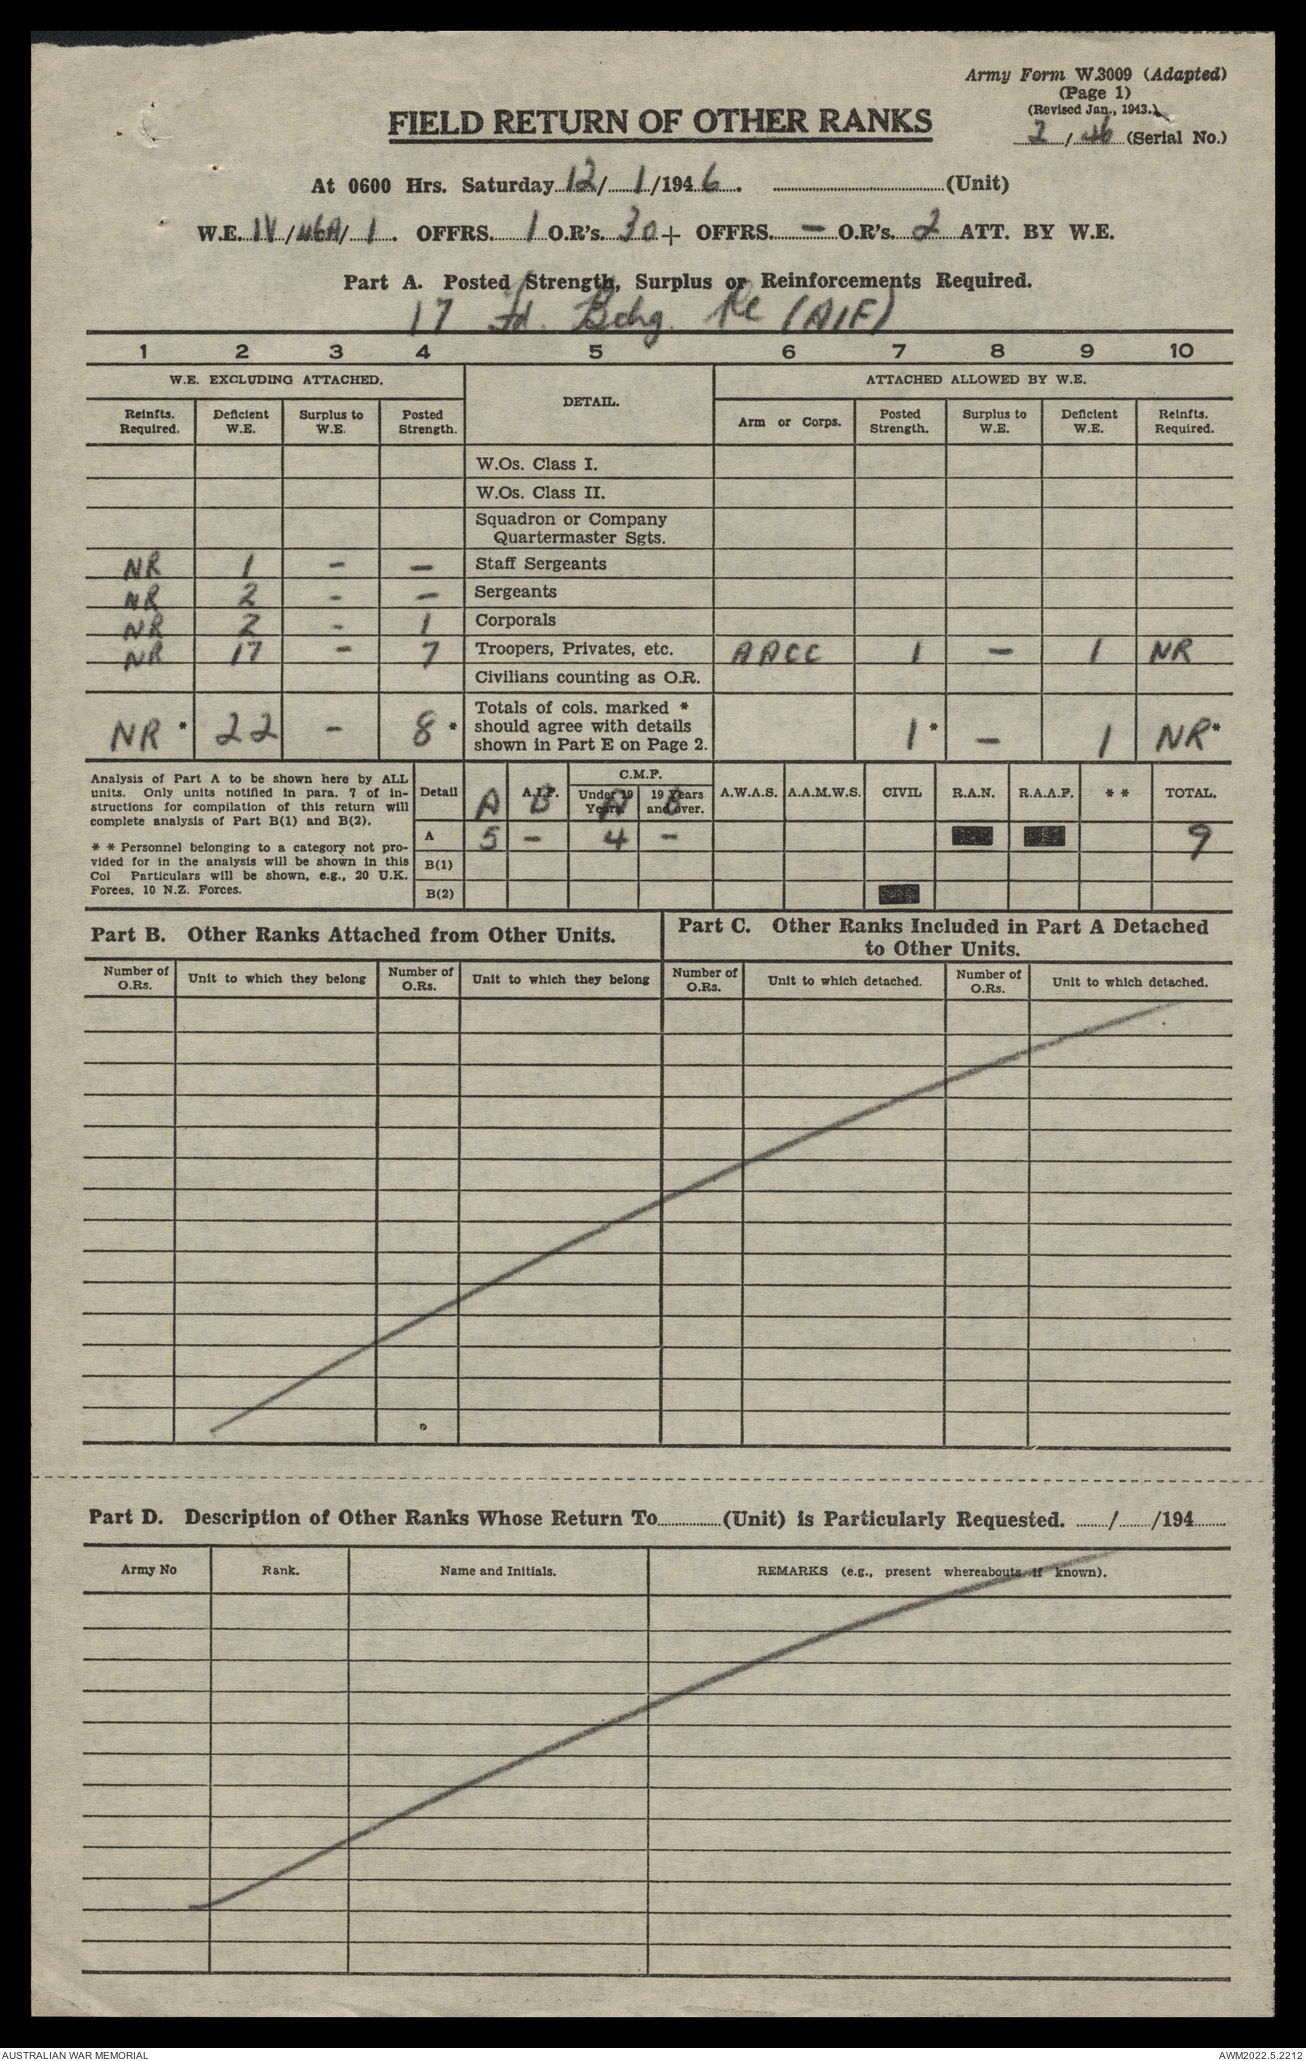 Army Form W.3009 (Adapted)
(Page 1)
(Revised Jan., 1943.)
2/46 (Serial No.)
FIELD RETURN OF OTHER RANKS
At 0600 Hrs. Saturday 12/1/1946. (Unit)
W.E. IV/46A/1. OFFRS. 1 O.R's. 30 + OFFRS. - O.R's. 2 ATT. BY W.E.
Part A. Posted Strength, Surplus or Reinforcements Required.
17 Fd. Bchy. Pl (AIF)
1 2 3 4 5 6 7 8 9 10
W.E. EXCLUDING ATTACHED. DETAIL. ATTACHED ALLOWED BY W.E.
Reinfts. Required. Deficient W.E. Surplus to W.E. Posted Strength. Arm or Corps. Posted Strength. Surplus to W.E. Deficient W.E. Reinfts. Required.
W.Os. Class I.
W.Os. Class II.
Squadron or Company
Quartermaster Sgts.
NR 1 - - Staff Sergeants
NR 2 - - Sergeants
NR 2 - 1 Corporals
NR 17 - 7 Troopers, Privates, etc. AACC 1 - 1 NR
Civilians counting as O.R.
NR * 22 - 8 * Totals of cols. marked * should agree with details shown in Part E on Page 2. 1 * - 1 NR *
Analysis of Part A to be shown here by ALL
units. Only units notified in para. 7 of in-
structions for compilation of this return will
complete analysis of Part B(1) and B(2).
* * Personnel belonging to a category not pro-
vided for in the analysis will be shown in this
Col Particulars will be shown, e.g., 20 U.K.
Forces, 10 N.Z. Forces.
Detail A A.I.F. B C.M.F. Under 19 Years A 19 Years and over. B A.W.A.S. A.A.M.W.S. CIVIL R.A.N. R.A.A.F. * * TOTAL.
A 5 - 4 - 9
B(1)
B(2)
Part B. Other Ranks Attached from Other Units.
Part C. Other Ranks Included in Part A Detached
to Other Units.
Number of O.Rs. Unit to which they belong Number of O.Rs. Unit to which they belong Number of O.Rs. Unit to which detached. Number of O.Rs. Unit to which detached.
Part D. Description of Other Ranks Whose Return To (Unit) is Particularly Requested. / /194
Army No Rank. Name and Initials. REMARKS (e.g., present whereabouts if known).
AUSTRALIAN WAR MEMORIAL AWM2022.5.2212